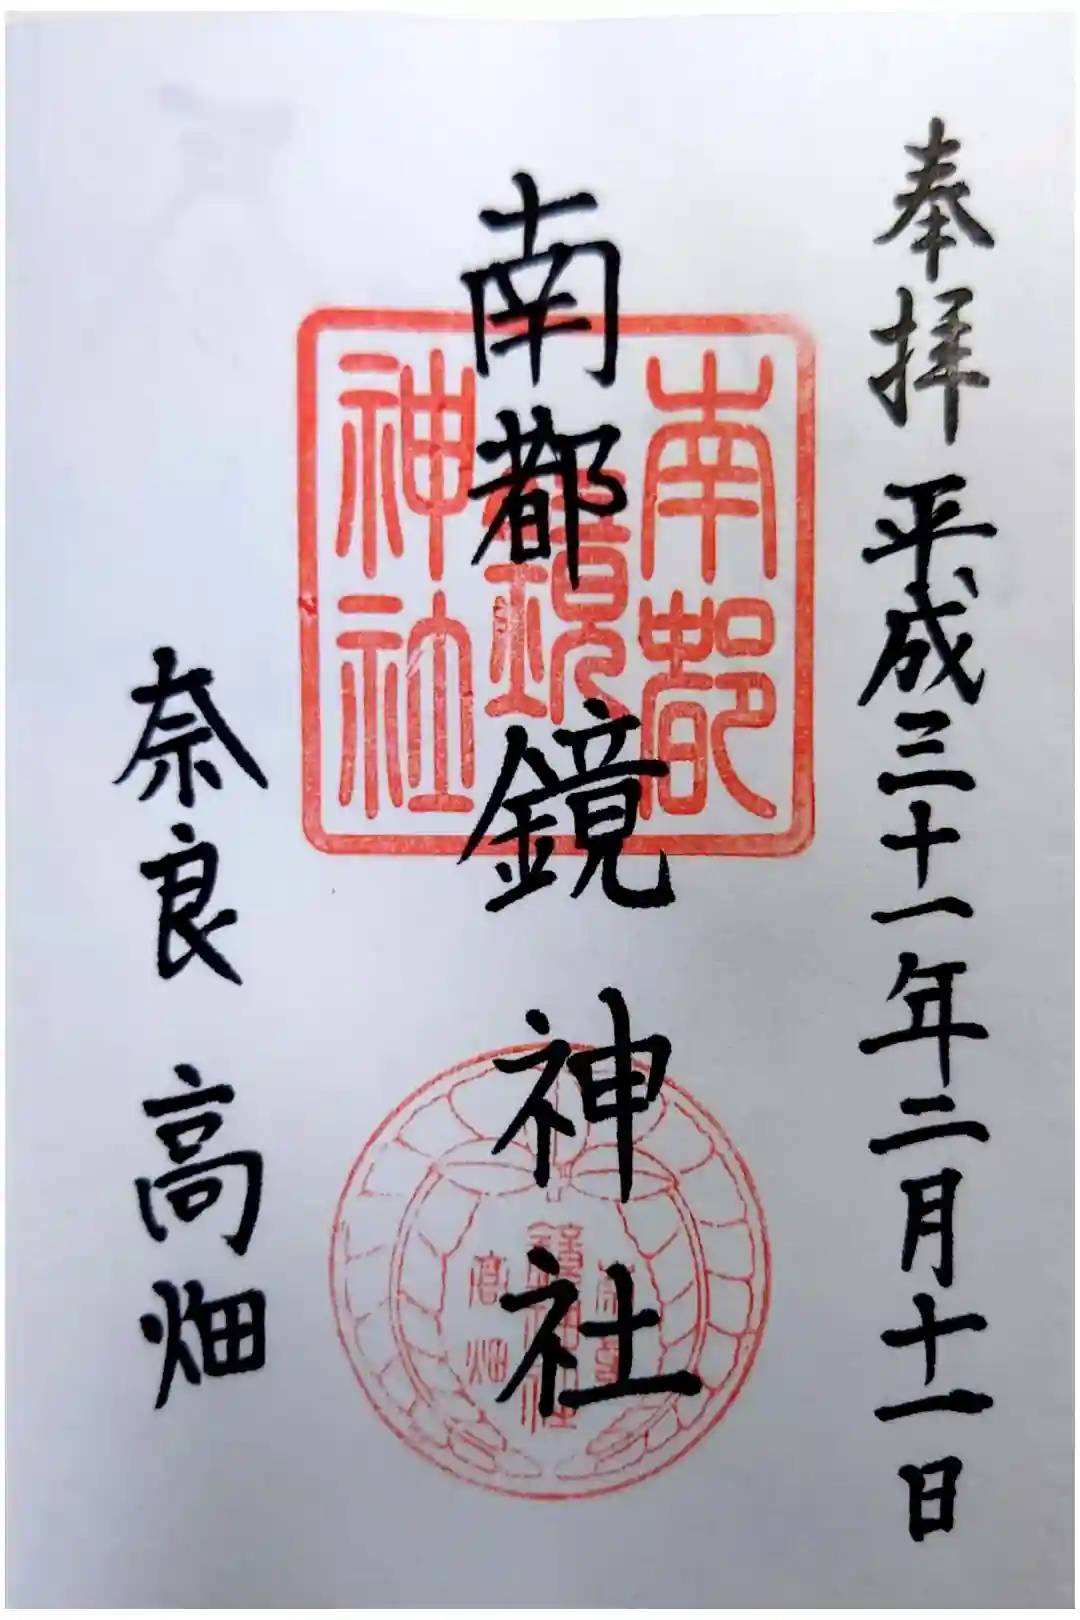 奉拝 平成三十一年二月十一日
南都鏡神社
南都
鏡
神社
高畑
奈良 高畑